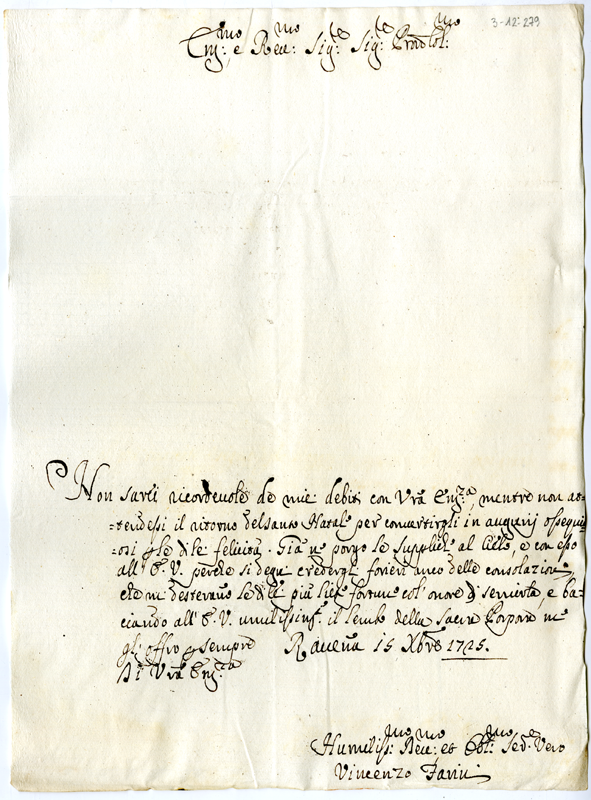 3-12:279
Em:mo e Reu:mo Sig:re Sig:re Prōn Col:mo
Non sarei ricordeuole de miei debiti con Vr̄a Em:za, mentre non at-
-tendessi il ritorno del santo Natale per conuertirgli in augurij ossequi
-osi di felicità. Già ne porgo le suppliche al Cielo, e con esso
all'E. V. perche si degni credergli forieri anco delle consolazioni,
che mi desteranno le di lei più liete fortune col onore di seruirla, e ba-
ciando all'E. V. umilissimam.te il lembo della Sacra Porpora me
gli offro p sempre Rauenna 15 Xbre 1725.
Di Vr̄a Em:za
Humiliss:mo Reu:mo et Obl:mo Ser.e Vero
Vincenzo